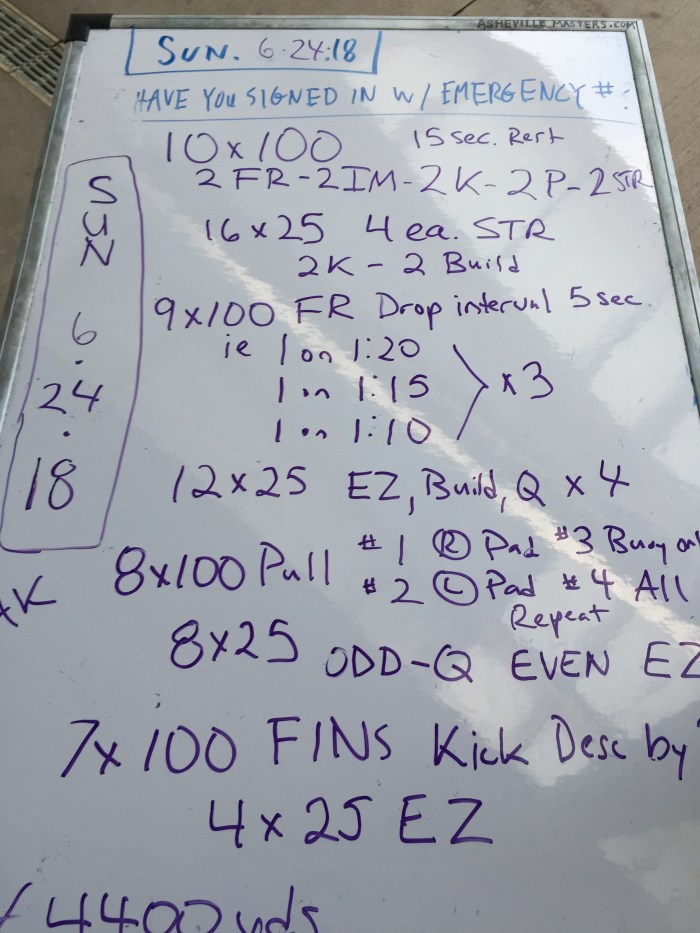 ASHEVILLE MASTERS.COM
SUN. 6.24.18
HAVE YOU SIGNED IN W/ EMERGENCY #:
SUN 6.24.18
10 x 100 15 sec. Rest
2 FR-2IM-2K-2P-2STR
16 x 25 4 ea. STR
2K - 2 Build
9x100 FR Drop interval 5 sec.
ie 1 on 1:20
1 on 1:15 x 3
1 on 1:10
12 x 25 EZ, Build, Q x 4
8x100 Pull #1 Ⓡ Pad #3 Buoy on
#2 Ⓛ Pad #4 All
Repeat
8x25 ODD-Q EVEN EZ
7x100 FINS Kick Desc by
4 x 25 EZ
4400 yds